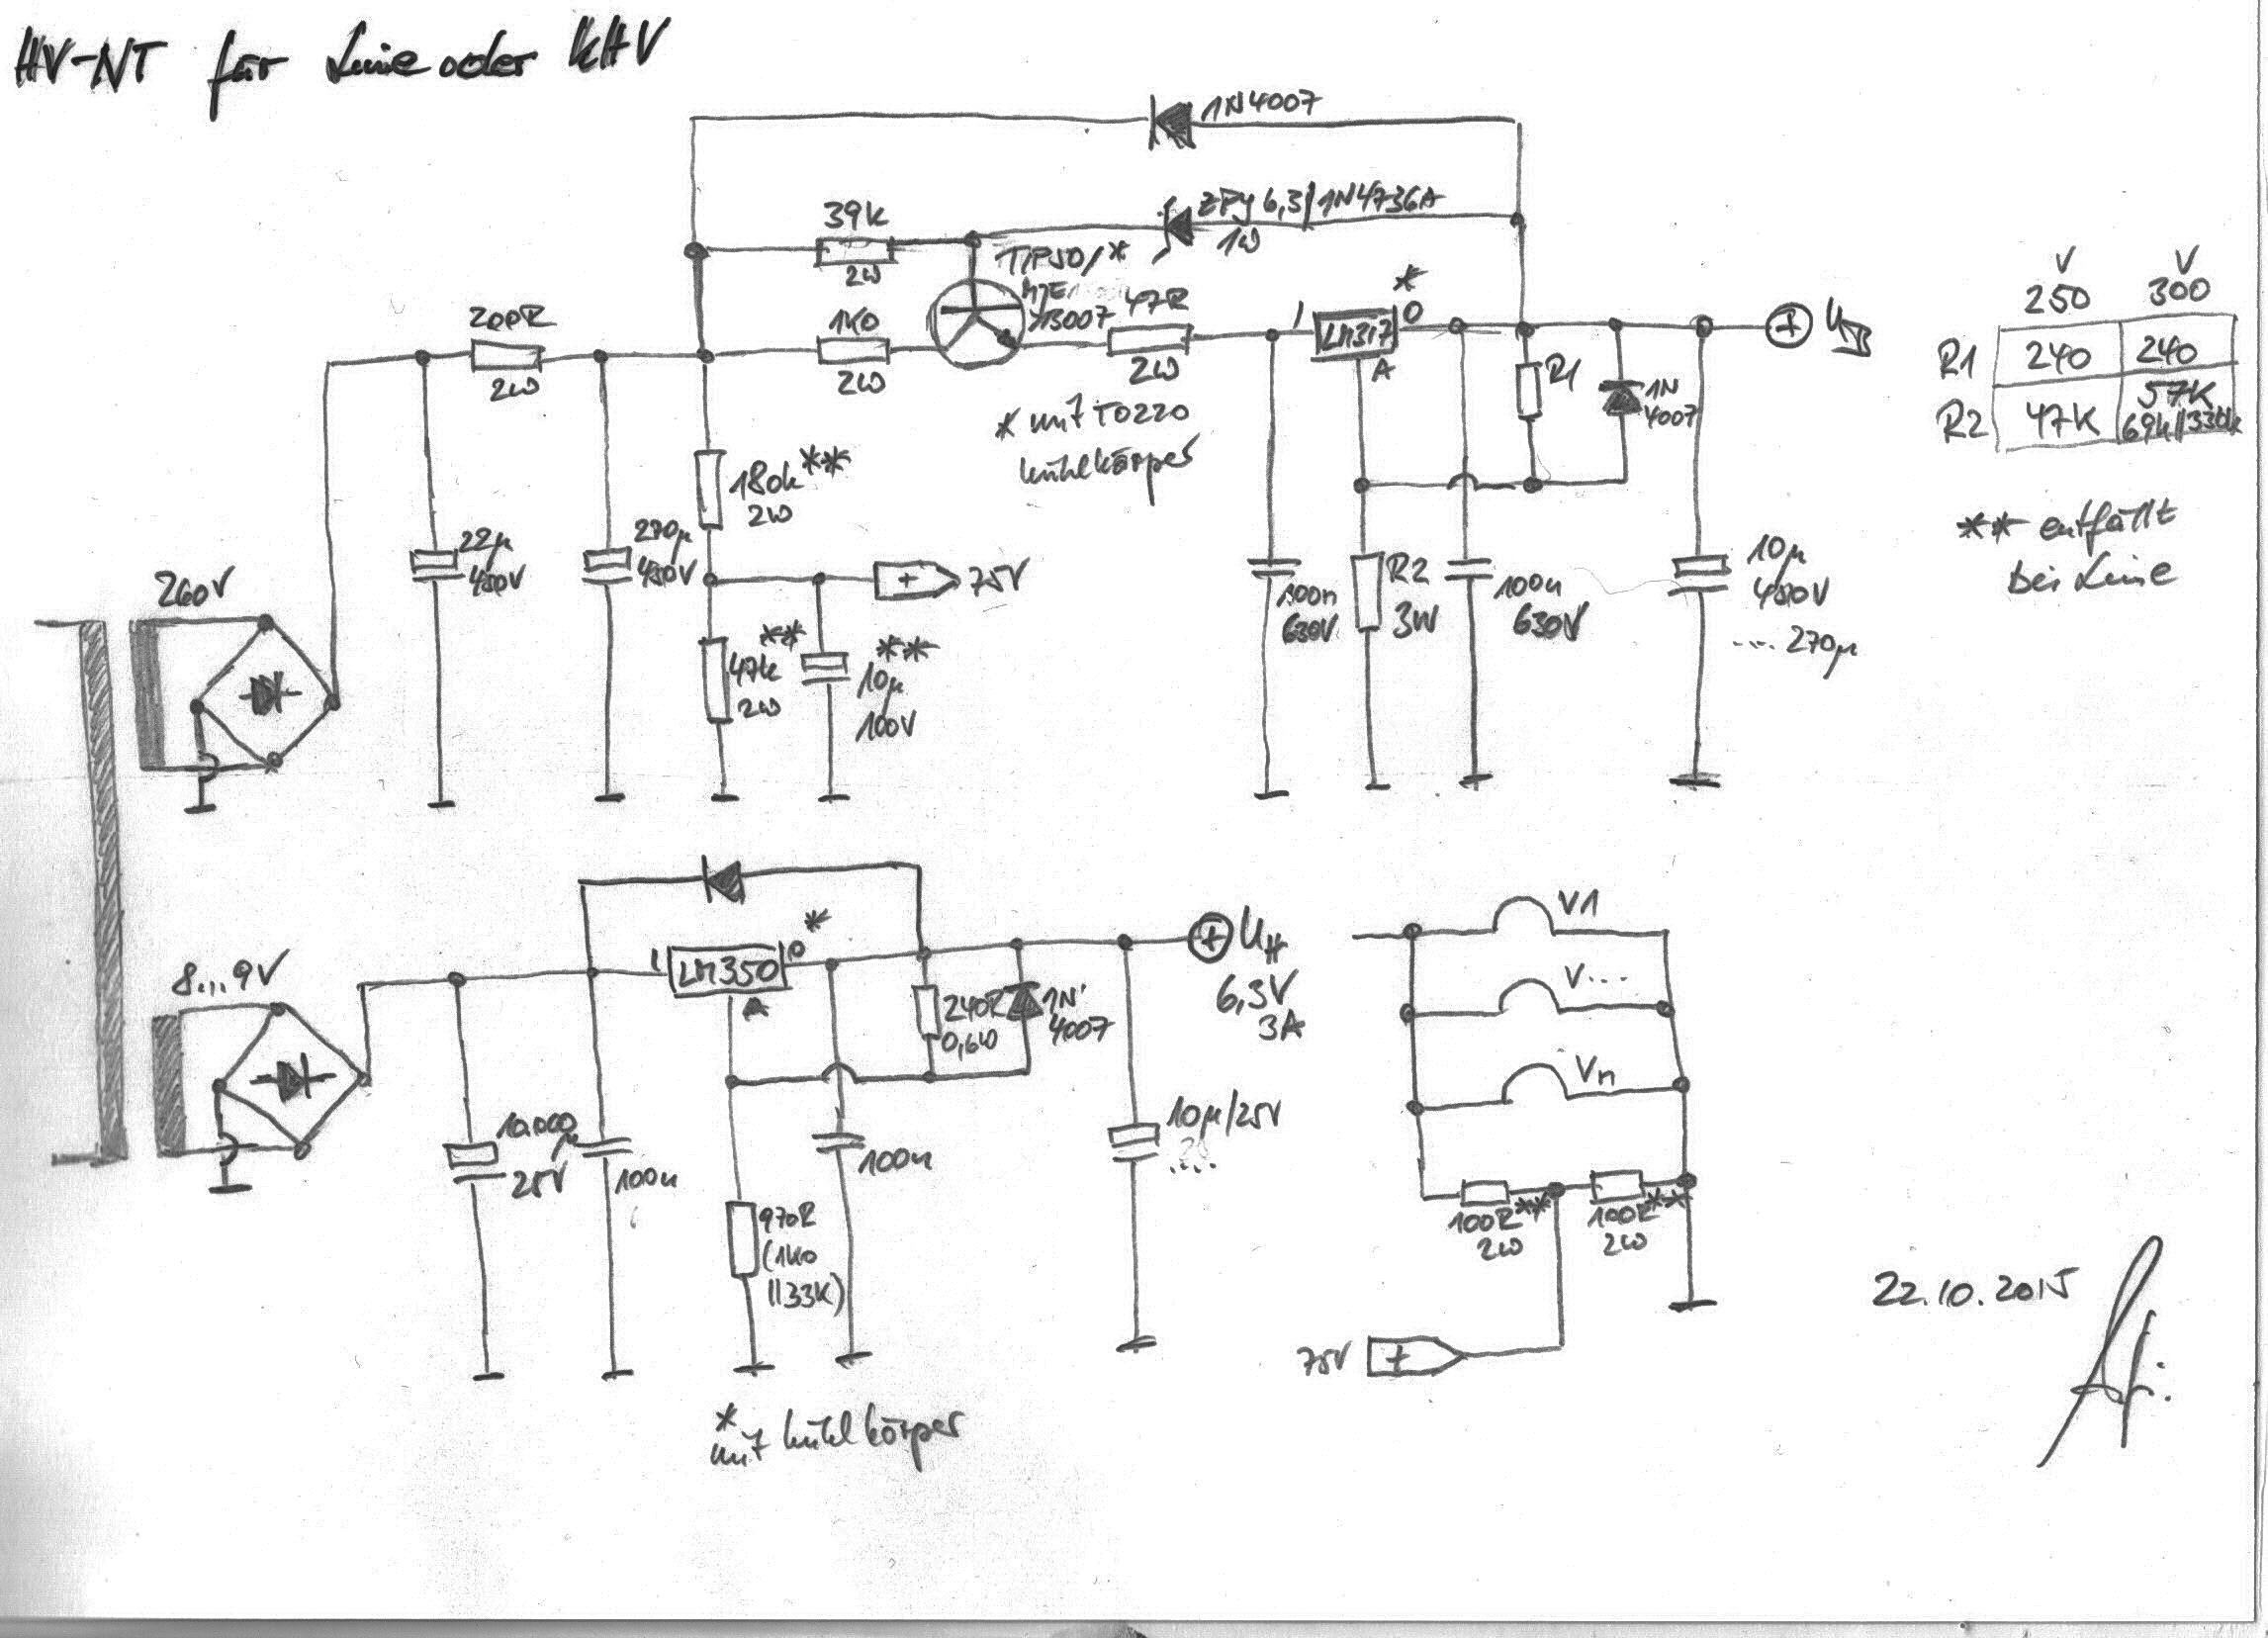 HV-NT für Line oder KHV
1N4007
ZPY 6,3/1N4736A
1W
39k
2W
TIP50/*
MJE
13007
200R
2W
1k0
2W
47R
2W
1
LM317
*
0
A
* mit TO220
Kühlkörper
R1
1N
4007
V V
250 300
R1 240 240
R2 47K 57K
69k//330k
** entfällt
bei Line
180k**
2W
22µ
450V
270µ
450V
75V
+
47k**
2W
10µ**
100V
100n
630V
R2
3W
100n
630V
10µ
450V
.... 270µ
260V
8...9V
1
LM350
0
*
A
240R
0,6W
1N
4007
+
UH
6,3V
3A
10.000µ
25V
100n
970R
(1k0
//33K)
100n
10µ/25V
* mit Kühlkörper
V1
V...
Vn
100R**
2W
100R**
2W
75V
+
22.10.2015